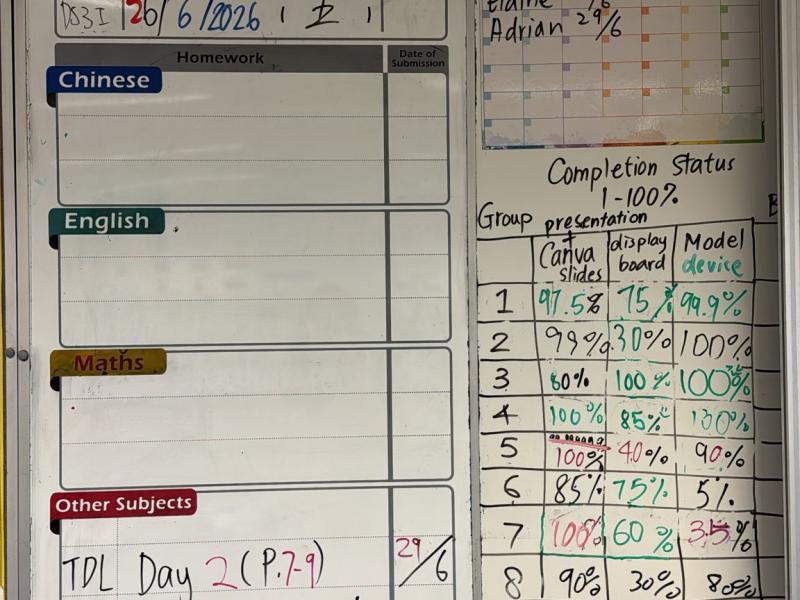 DS3I 26/6/2026 ( 五 )
Homework
Date of Submission
Chinese
English
Maths
Other Subjects
TDL Day 2 (P.7-9) 29/6
Adrian 29/6
Completion Status
1-100%
Group presentation
+
Canva slides display board Model device
1 97.5% 75% 99.9%
2 99% 30% 100%
3 80% 100% 100%
4 100% 85% 100%
5 100% 40% 90%
6 85% 75% 5%
7 100% 60% 3.5%
8 90% 30% 80%